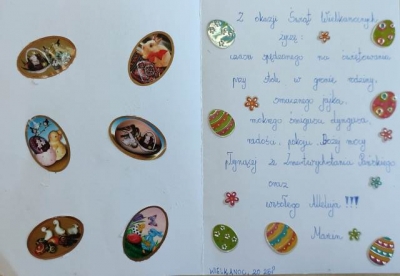 Z okazji Świąt Wielkanocnych
życzę:
czasu spędzonego na świętowaniu
przy stole w gronie rodziny,
smacznego jajka,
mokrego śmigusa dyngusa,
radości, pokoju, Bożej mocy
płynącej z Zmartwychwstania Pańskiego
oraz
wesołego Alleluja!!!
WIELKANOC, 20